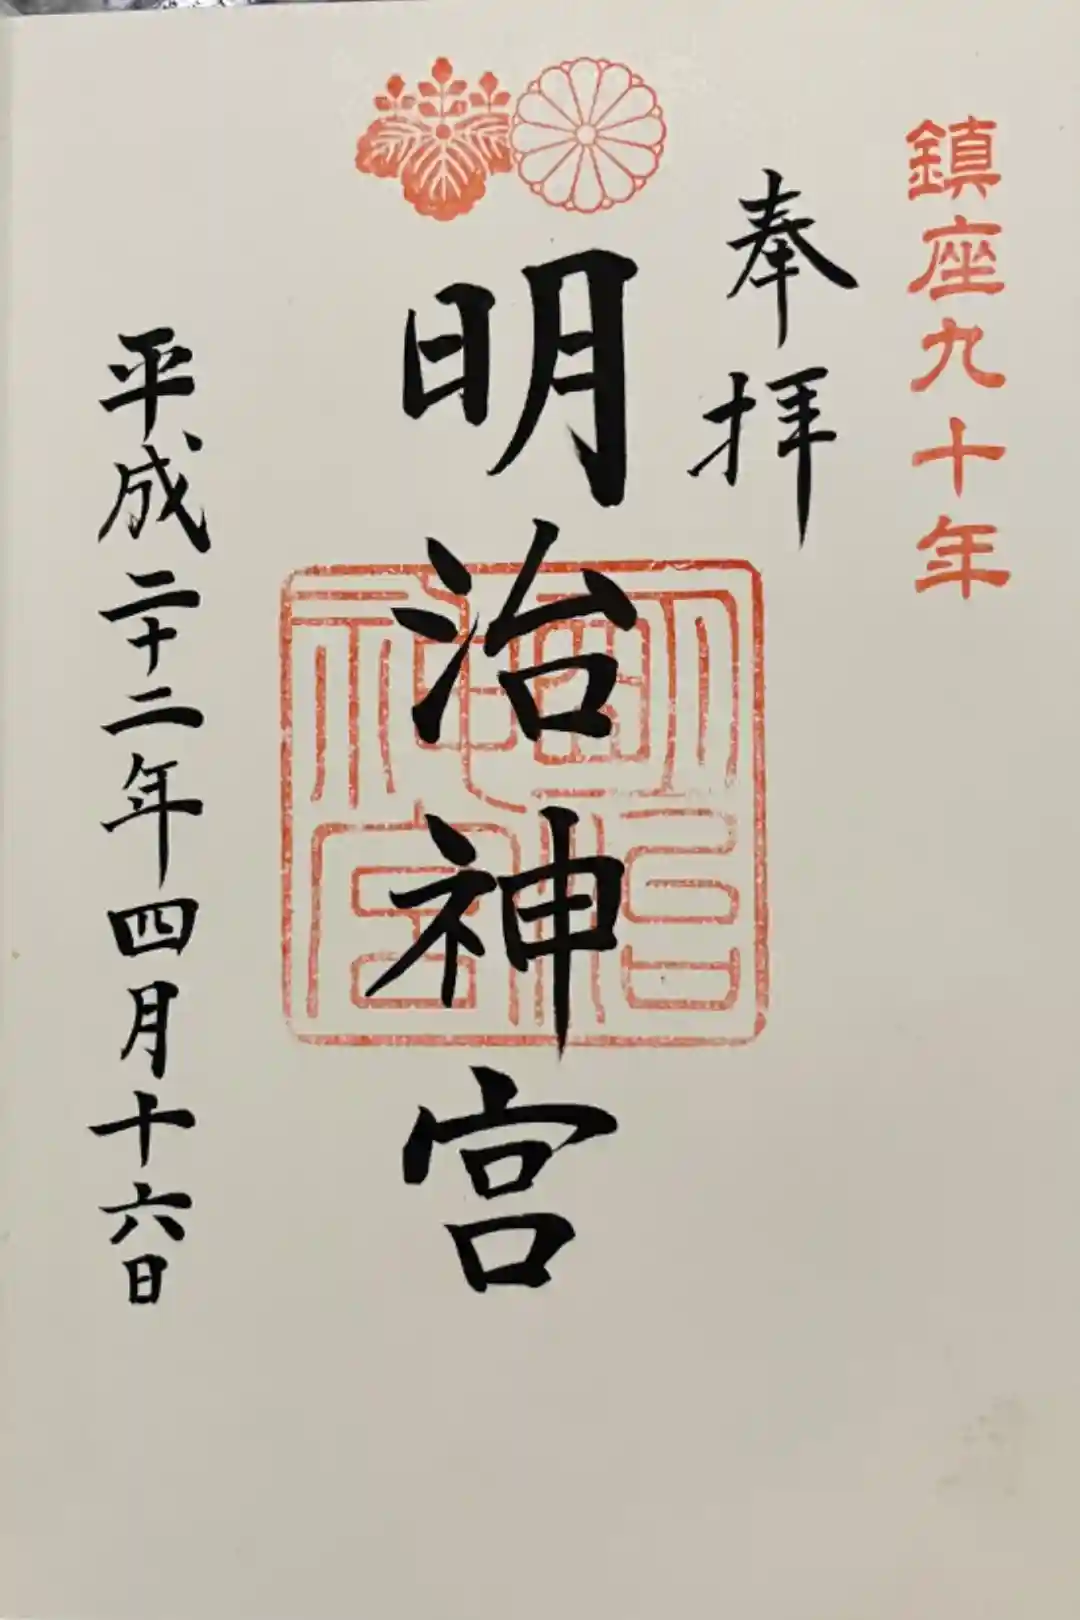 鎮座九十年
奉拝
明治神宮
平成二十二年四月十六日
明治神宮